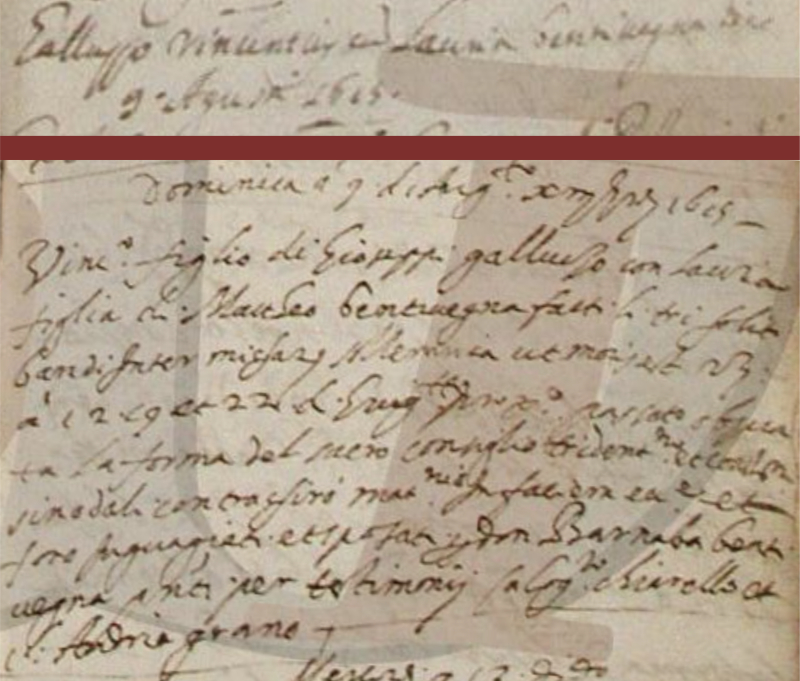 Galluzzo Vincentius cu Lauria bentivegna die
9. Agusti 1615.
Dominica a 9 di Aug.to xiij Ind. 1615
Vinc.o figlio di Gioseppi galluzzo con Lauria
figlia di Mattheo bentivegna fatti li tri soliti
bandi inter missarum sollemnia ut moris est
a 12 19 et 22 di passato
ta la forma del sacro consiglio trident.no et
sinodali contrassiro mat.nio in faciem ecc.e et
foro et sposati p don Barnaba benti
vegna p.nti per testimonij Calog.ro chiarello et
cl. Andria grano